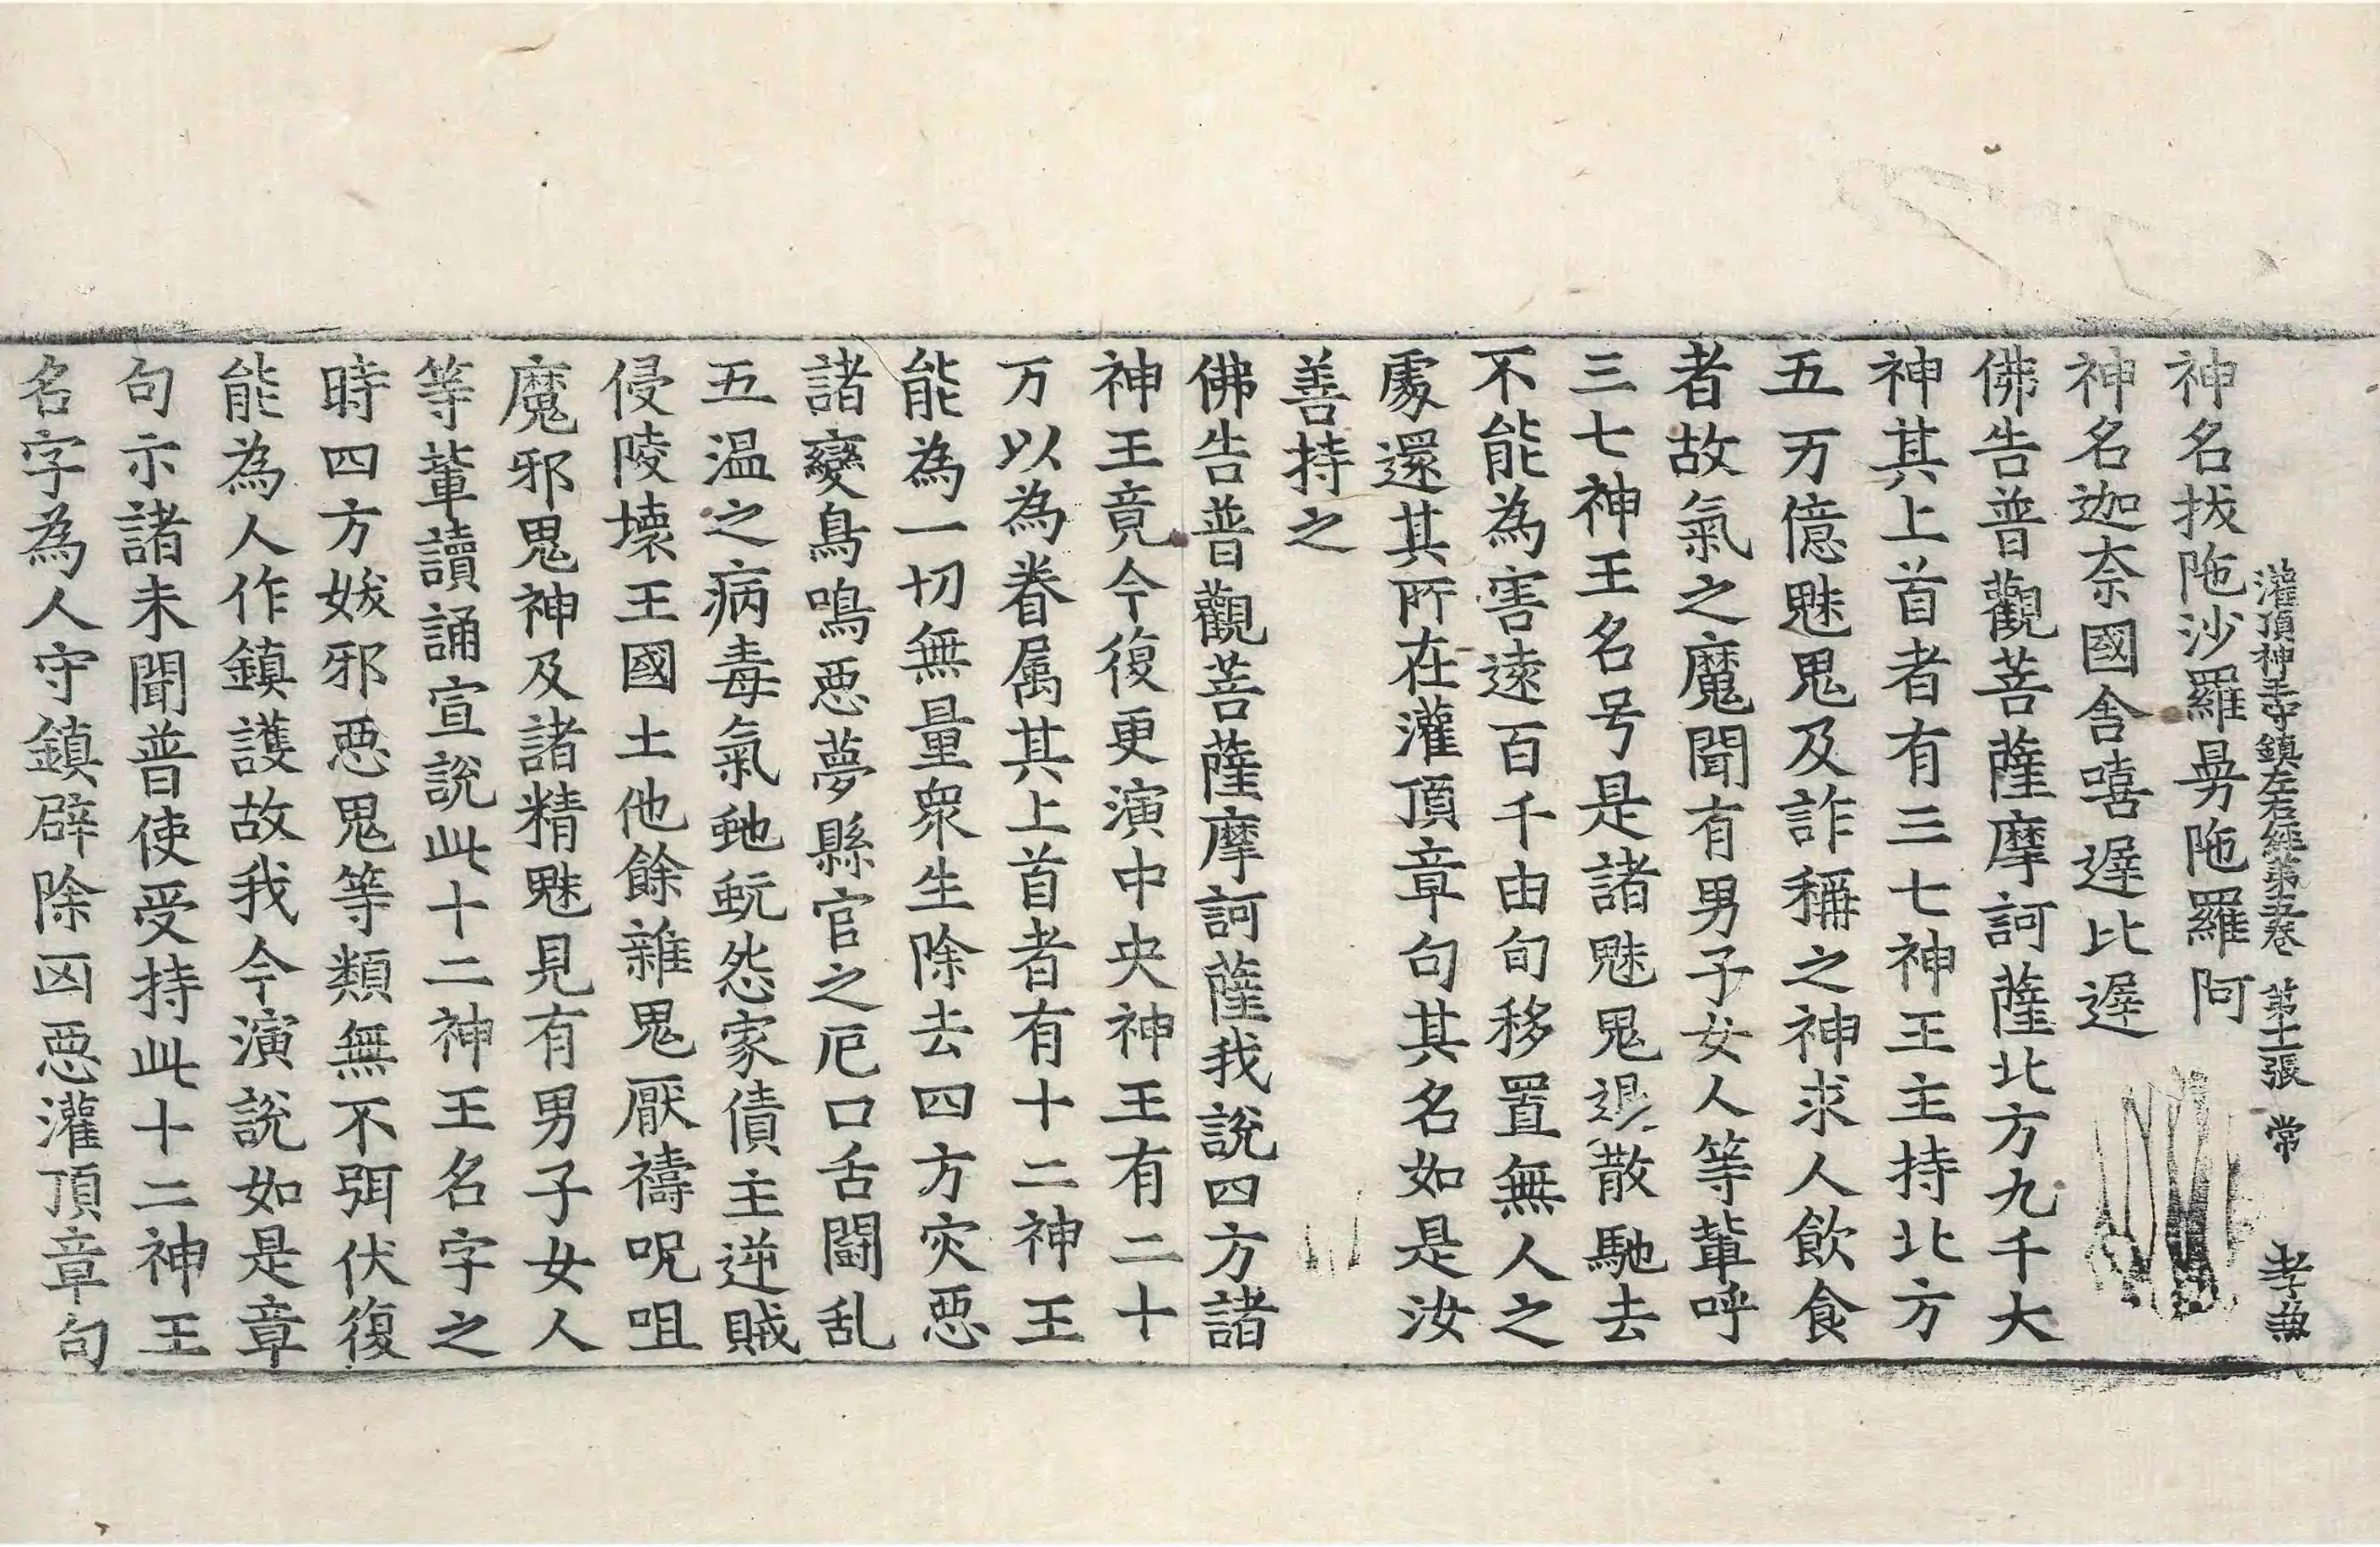 灌頂神王寺鎮左右經第五卷 第十二張 常 孝兼
神名拔陁沙羅㝵陁羅阿
神名迦柰國舍嘻遲比遲
佛告普觀菩薩摩訶薩北方九千大
神其上首者有三七神王主持北方
五万億魅鬼及詐稱之神求人飲食
者故氣之魔聞有男子女人等軰呼
三七神王名号是諸魅鬼退散馳去
不能為害遠百千由旬移置無人之
處還其所在灌頂章句其名如是汝
善持之
佛告普觀菩薩摩訶薩我說四方諸
神王竟今復更演中央神王有二十
万以為眷属其上首者有十二神王
能為一切無量衆生除去四方灾惡
諸變鳥鳴惡夢縣官之厄口舌闘乱
五温之病毒氣虵蚖怨家債主逆賊
侵陵壞王國土他餘雜鬼厭禱呪咀
魔邪鬼神及諸精魅見有男子女人
等軰讀誦宣說此十二神王名字之
時四方妭邪惡鬼等類無不弭伏復
能為人作鎮護故我今演說如是章
句示諸未聞普使受持此十二神王
名字為人守鎮辟除凶惡灌頂章句